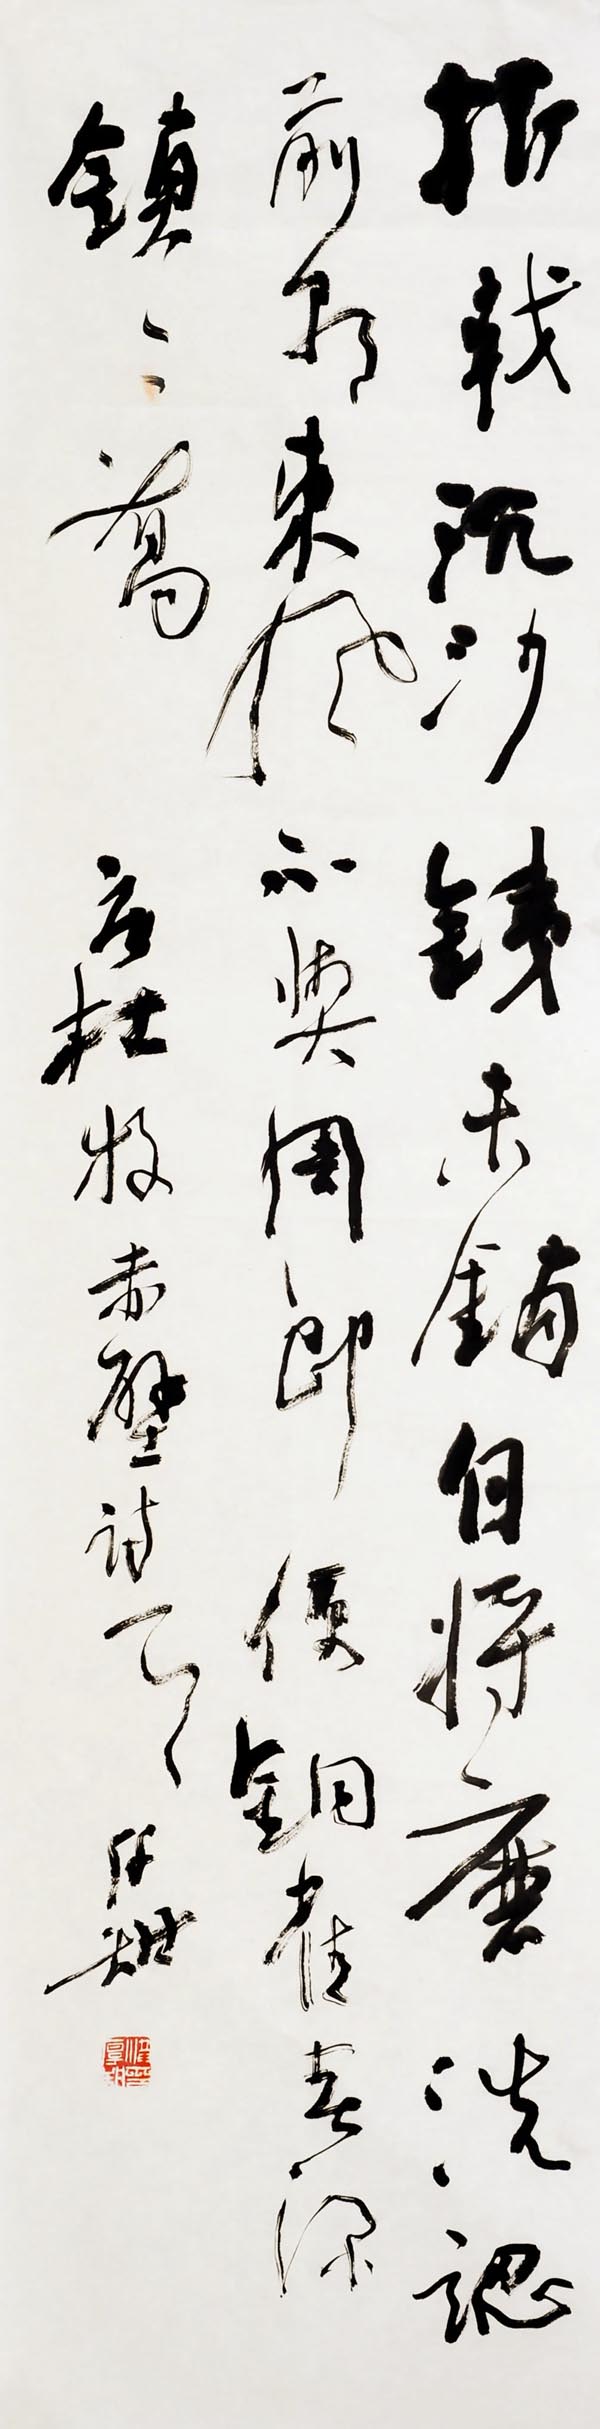 折戟沉沙銕未銷自將磨洗認
前朝東風不與周郎便銅雀春深
鎖二喬 唐杜牧赤壁詩一首